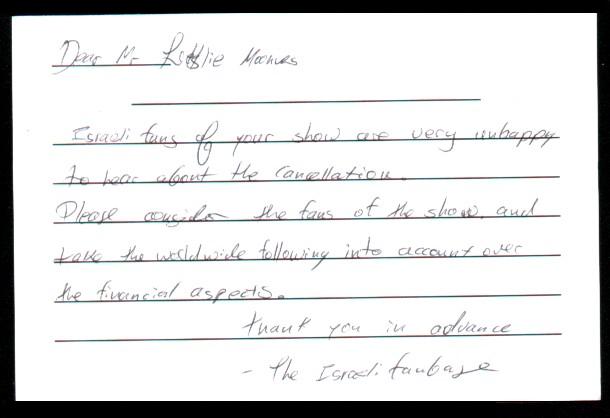 Dear Mr Leslie Moonves
Israeli fans of your show are very unhappy
to hear about the cancellation.
Please consider the fans of the show, and
take the worldwide following into account over
the financial aspects.
thank you in advance
- The Israeli fanbase